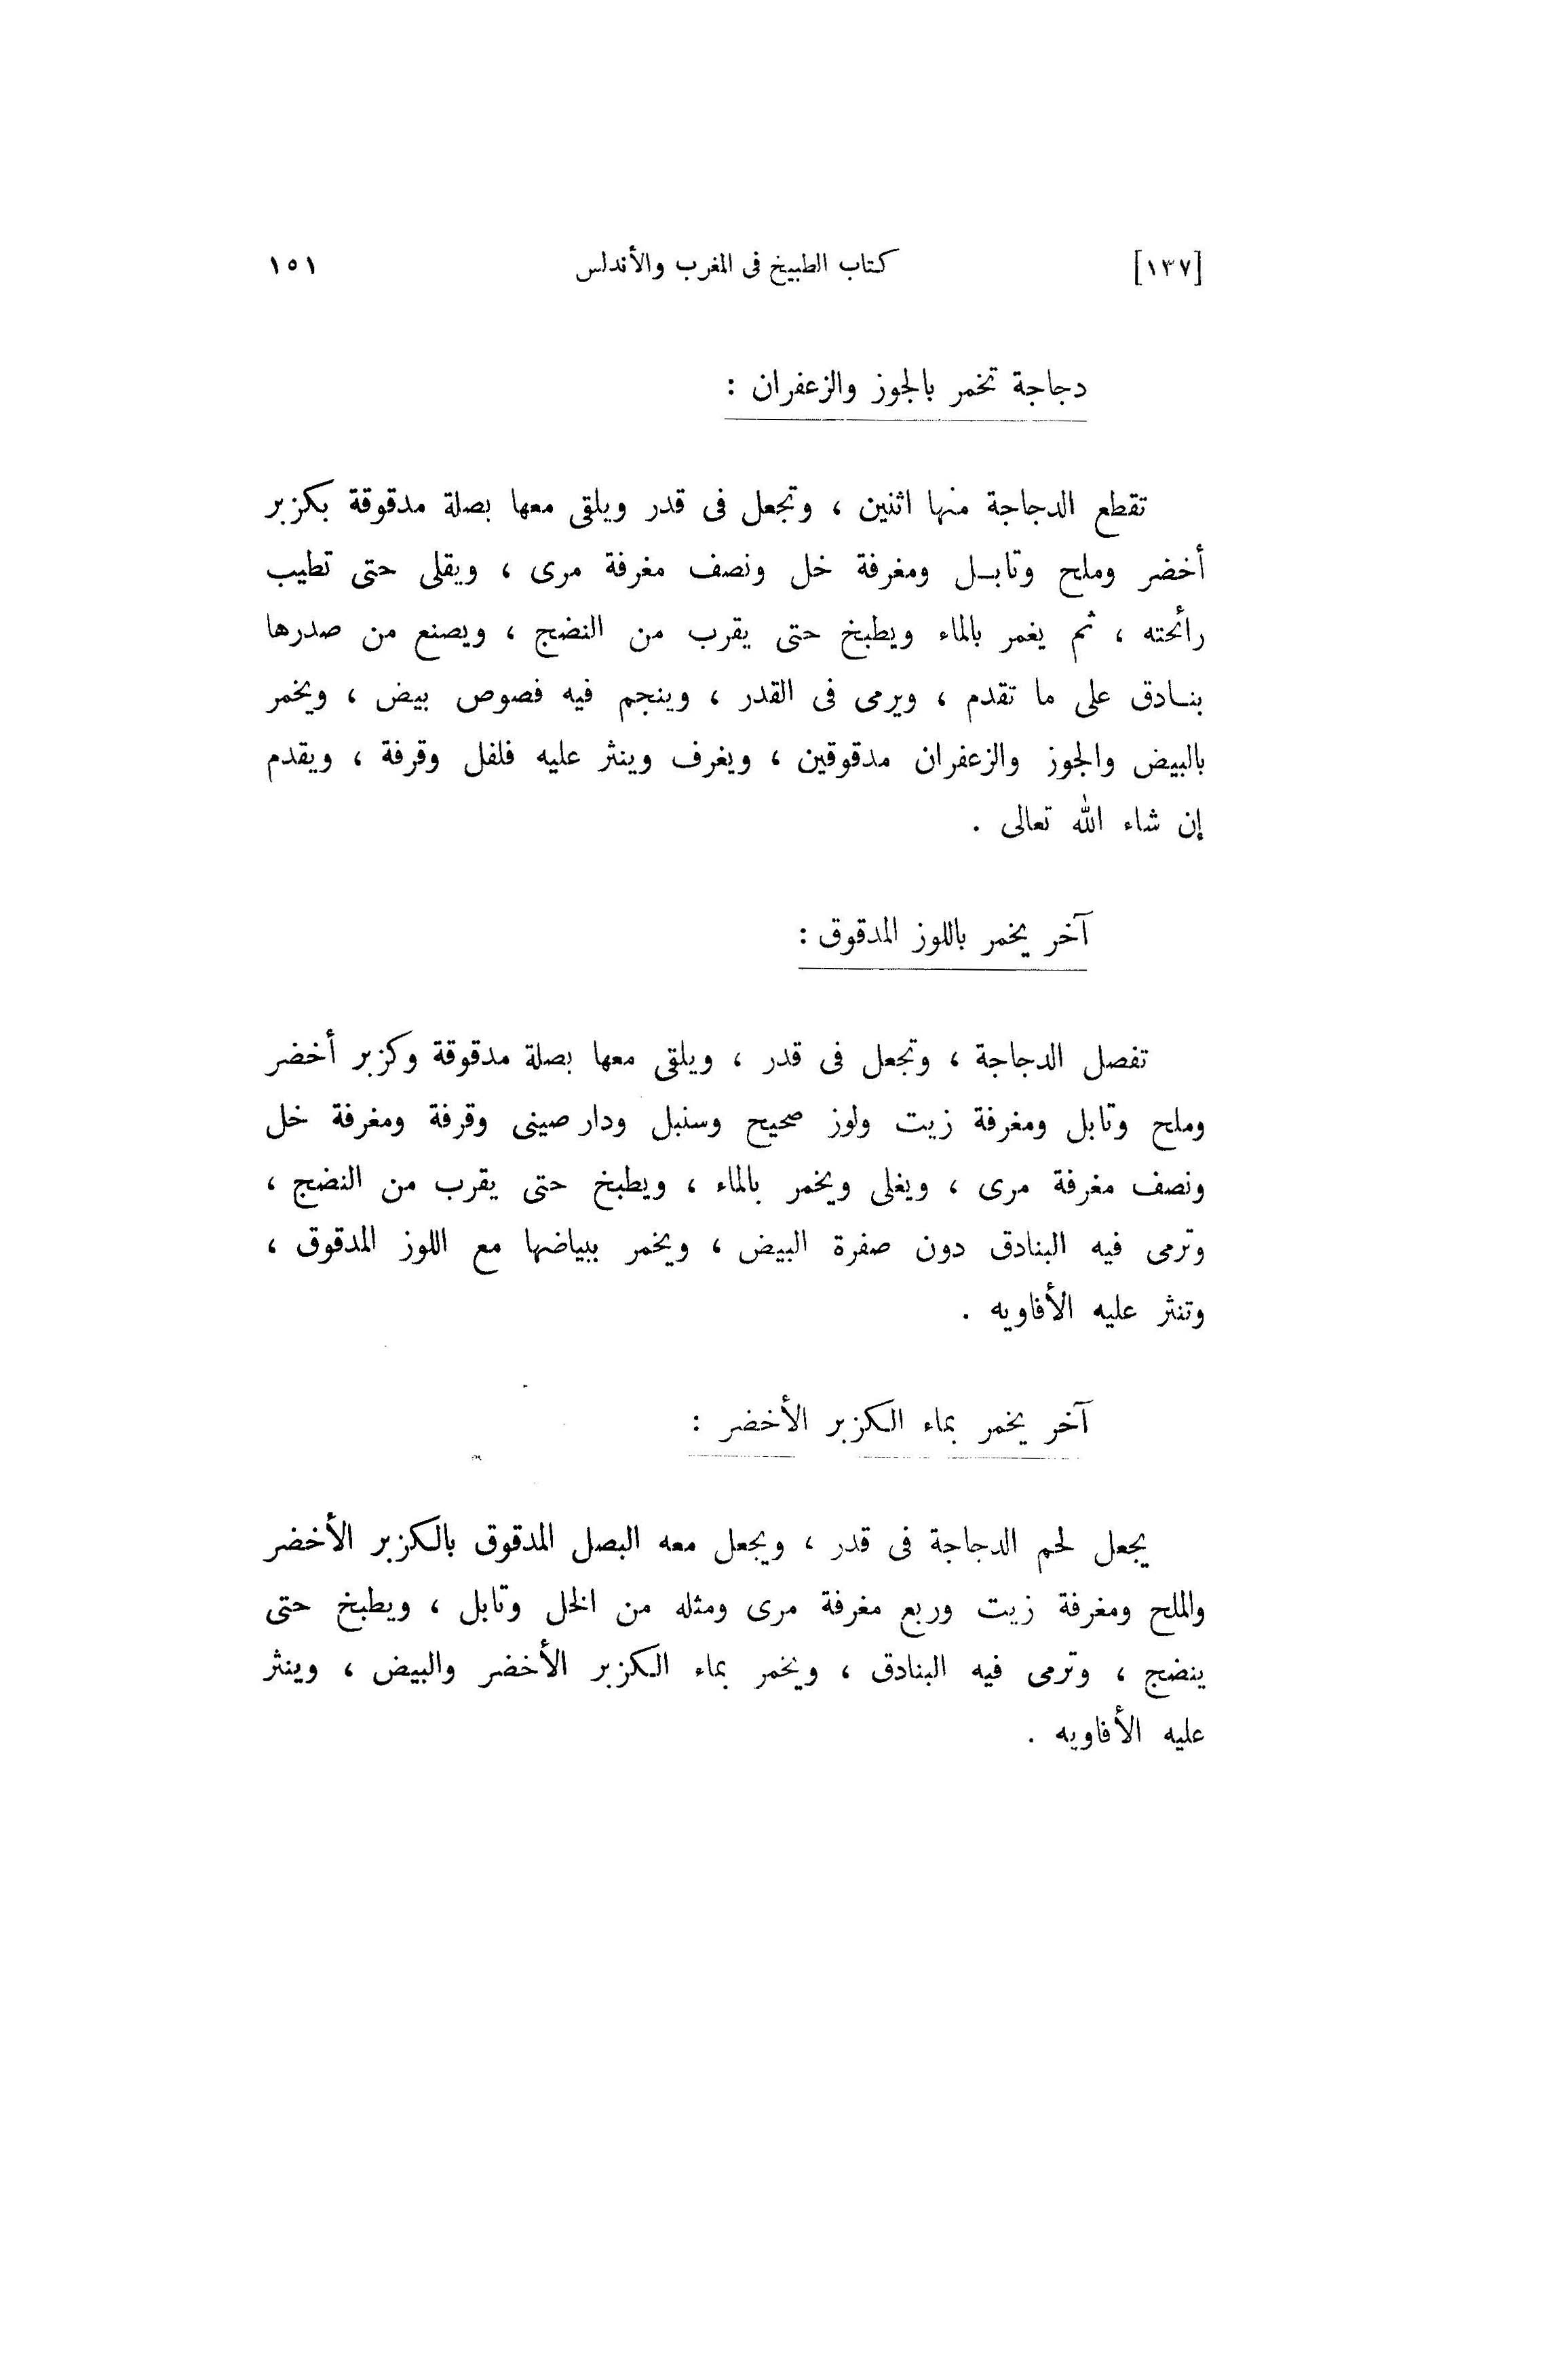 [١٣٧] كتاب الطبيخ فى المغرب والأندلس ١٥١
دجاجة تخمر بالجوز والزعفران :
تقطع الدجاجة منها اثنين ، وتجعل فى قدر ويلقى معها بصلة مدقوقة بكزبر
أخضر وملح وتابــل ومغرفة خل ونصف مغرفة مرى ، ويقلى حتى تطيب
رائحته ، ثم يغمر بالماء ويطبخ حتى يقرب من النضج ، ويصنع من صدرها
بنــادق على ما تقدم ، ويرمى فى القدر ، وينجم فيه فصوص بيض ، ويخمر
بالبيض والجوز والزعفران مدقوقين ، ويغرف وينثر عليه فلفل وقرفة ، ويقدم
إن شاء الله تعالى .
آخر يخمر باللوز المدقوق :
تفصل الدجاجة ، وتجعل فى قدر ، ويلقى معها بصلة مدقوقة وكزبر أخضر
وملح وتابل ومغرفة زيت ولوز صحيح وسنبل ودار صينى وقرفة ومغرفة خل
ونصف مغرفة مرى ، ويغلى ويخمر بالماء ، ويطبخ حتى يقرب من النضج ،
وترمى فيه البنادق دون صفرة البيض ، ويخمر ببياضها مع اللوز المدقوق ،
وتنثر عليه الأفاويه .
آخر يخمر بماء الكزبر الأخضر :
يجعل لحم الدجاجة فى قدر ، ويجعل معه البصل المدقوق بالكزبر الأخضر
والملح ومغرفة زيت وربع مغرفة مرى ومثله من الخل وتابل ، ويطبخ حتى
ينضج ، وترمى فيه البنادق ، ويخمر بماء الكزبر الأخضر والبيض ، وينثر
عليه الأفاويه .